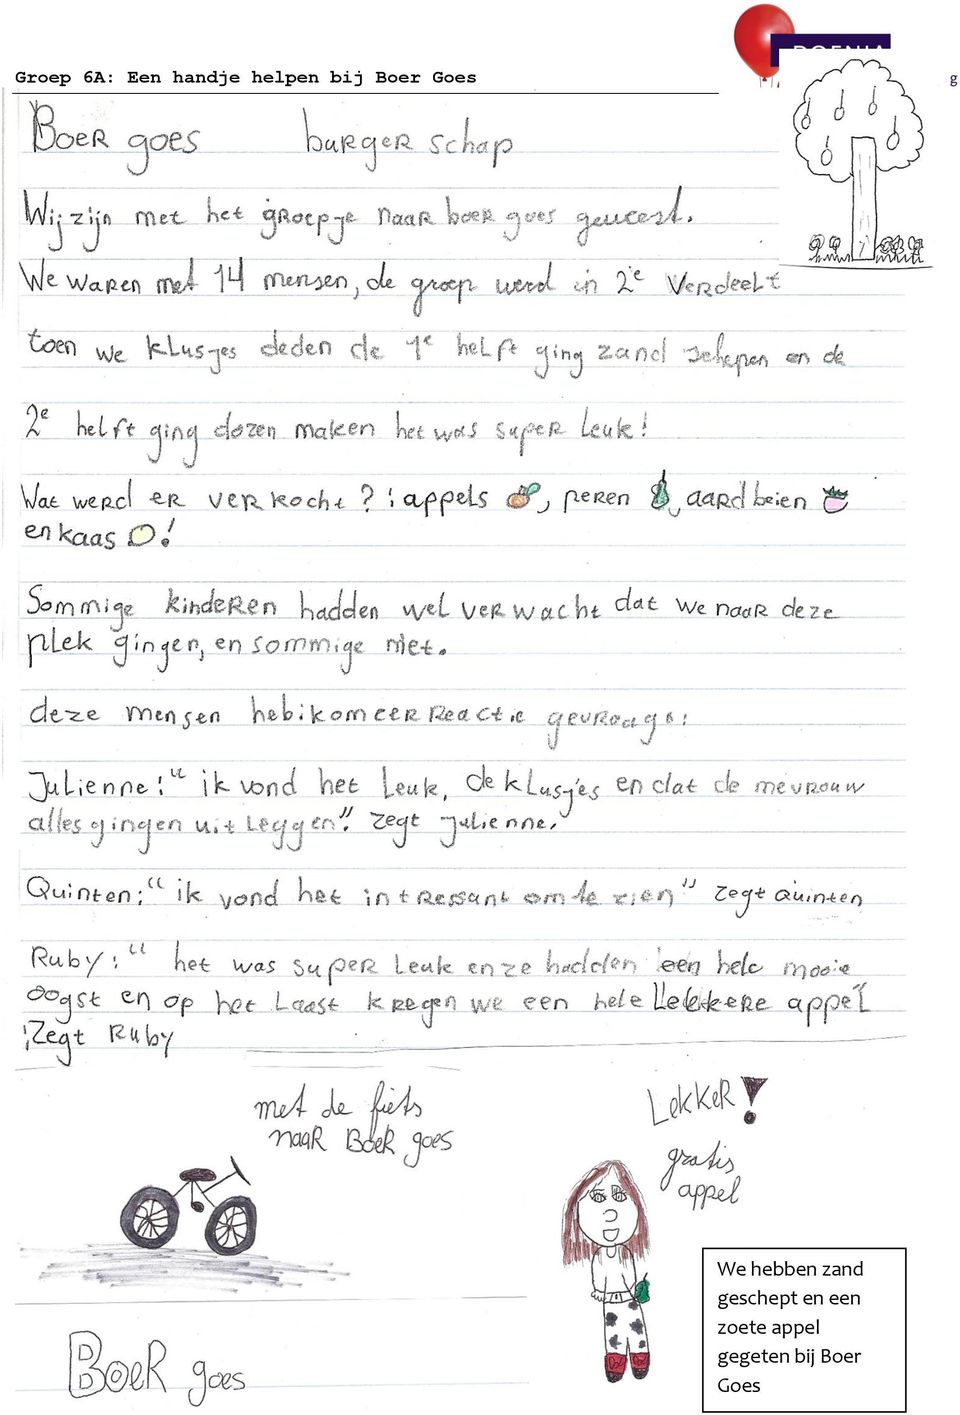 Groep 6A: Een handje helpen bij Boer Goes
g
Boer goes burger schap
Wij zijn met het groepje naar boer goes geweest.
We waren met 14 mensen, de groep werd in 2e verdeelt
toen we klusjes deden de 1e helft ging zand schepen en de
2e helft ging dozen maken het was super leuk!
Wat werd er verkocht? : appels, peren, aardbeien
en kaas!
Sommige kinderen hadden wel verwacht dat we naar deze
plek gingen, en sommige niet.
deze mensen heb ik om eer reactie gevraagt:
Julienne: "ik vond het leuk, de klusjes en dat de mevrouw
alles gingen uitleggen". zegt julienne.
Quinten: "ik vond het intressant om te zien" zegt Quinten
Ruby: "het was super leuk en ze hadden een hele mooie
oogst en op het laast kregen we een hele lekkere appel
zegt Ruby
met de fiets
naar Boer goes
Lekker!
gratis
appel
We hebben zand
geschept en een
zoete appel
gegeten bij Boer
Goes
Boer goes